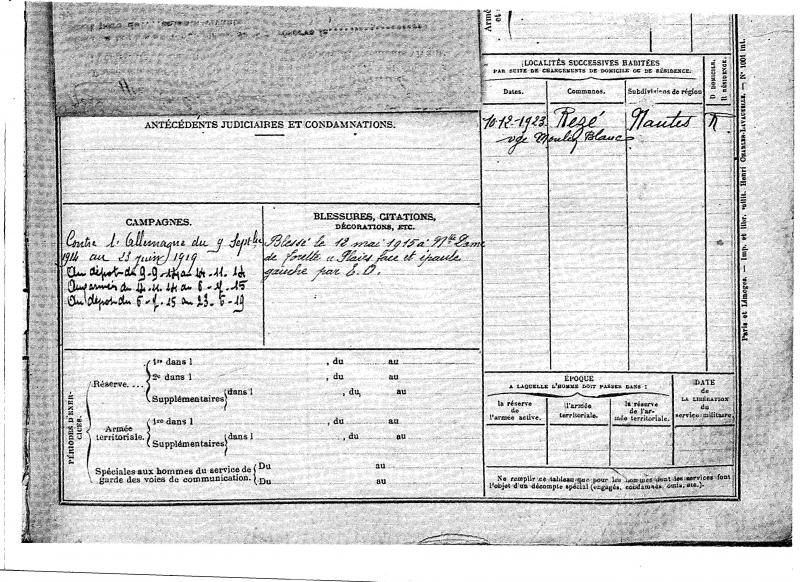 Armé
et
LOCALITÉS SUCCESSIVES HABITÉES
PAR SUITE DE CHANGEMENTS DE DOMICILE OU DE RÉSIDENCE.
Dates.
Communes.
Subdivisions de région
D DOMICILE,
R RÉSIDENCE.
10-12-1923. Rezé Nantes R
vge Moulin Blanc
ANTÉCÉDENTS JUDICIAIRES ET CONDAMNATIONS.
CAMPAGNES.
Contre l'Allemagne du 9 Septbre
1914 au 23 juin 1919
Au dépot du 9-9-14 au 4-11-14
Aux armées du 4-11-14 au 5-7-15
Au dépot du 6-7-15 au 23-6-19
BLESSURES, CITATIONS,
DÉCORATIONS, ETC.
Blessé le 12 mai 1915 à Ntre Dame
de Lorette « Plaies face et épaule
gauche par E.O.
PÉRIODES D'EXERCICES.
Réserve....
1re dans l , du au
2e dans l , du au
Supplémentaires dans l , du, au
Armée
territoriale.
1re dans l , du au
Supplémentaires dans l , du au
Spéciales aux hommes du service de
garde des voies de communication.
Du au
Du au
ÉPOQUE
A LAQUELLE L'HOMME DOIT PASSER DANS :
la réserve
de
l'armée active.
l'armée
territoriale.
la réserve
de l'ar-
mée territoriale.
DATE
de
LA LIBÉRATION
du
service militaire.
Ne remplir ce tableau que pour les hommes dont les services font
l'objet d'un décompte spécial (engagés, condamnés, omis, etc.).
Paris et Limoges. — Imp. et libr. milit. Henri CHARLES-LAVAUZELLE — N° 1001 int.